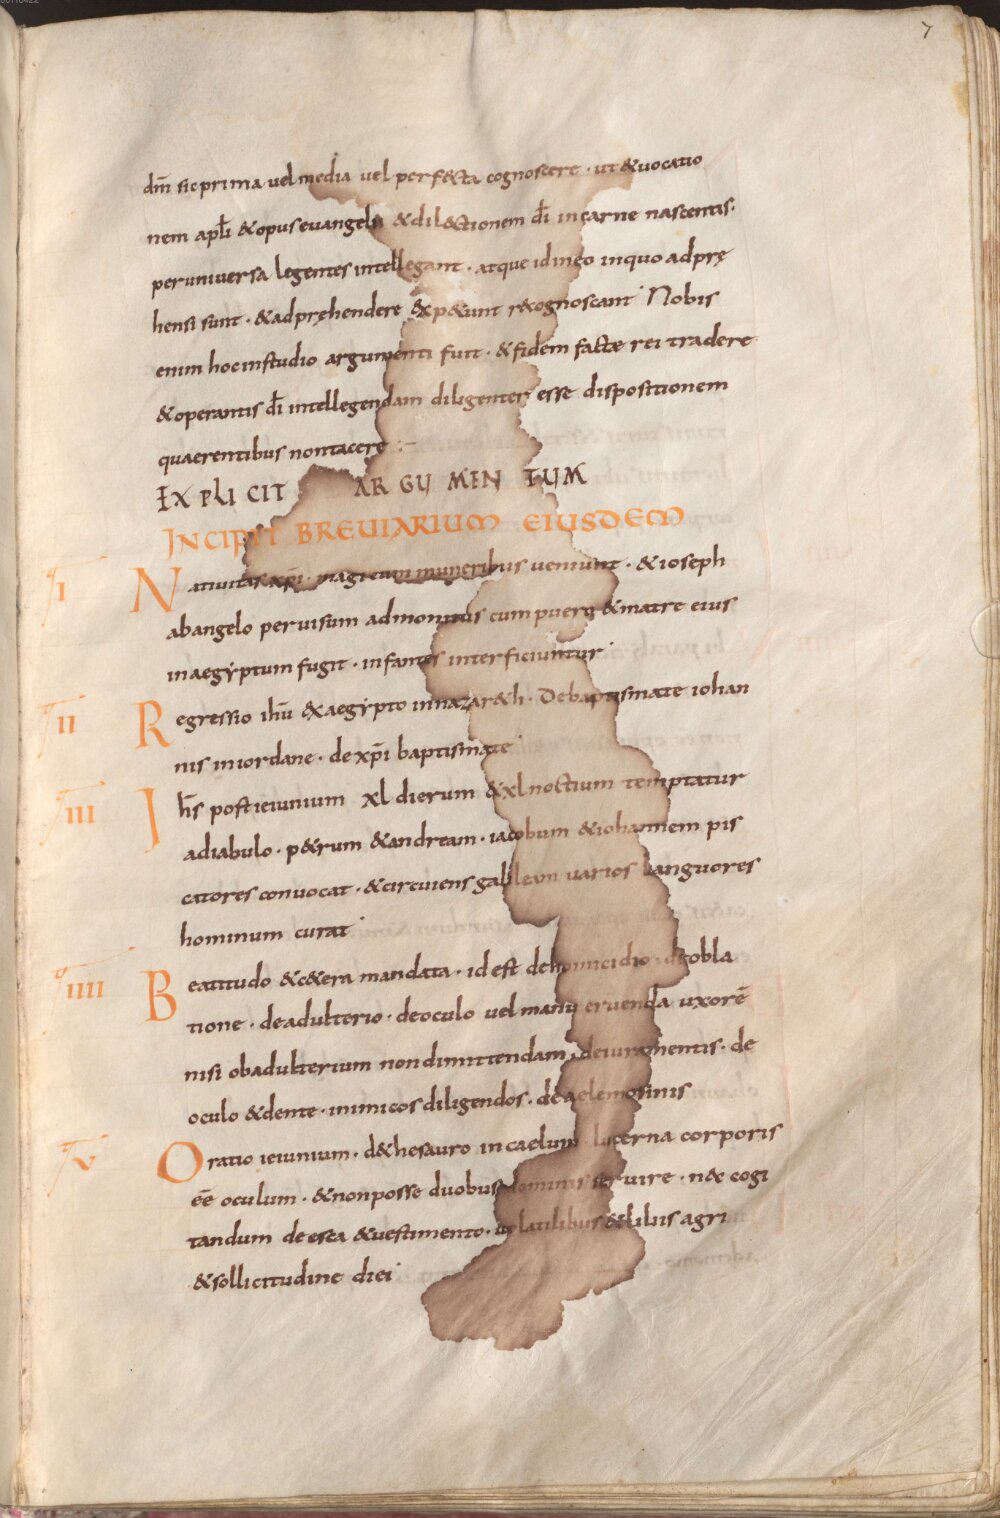 7
dm̅ sic prima vel media vel perf&cta cognoscere · ut & vocatio
nem apl̅i & opus evangelii & dil&ctionem d̅i in carne nascentis·
per universa legentes intellegant · atque id in eo in quo adprę
hensi sunt · & adpręhendere &xp&unt r&cognoscant · Nobis
enim hoc in studio argumenti fuit · & fidem factae rei tradere
& operantis d̅i intellegendam diligenter esse dispositionem
quaerentibus non tacere :-
EXPLICIT ARGUMENTUM
INCIPIT BREVIARIUM EIUSDEM
I Nativitas xp̅i · magi cum muneribus veniunt · & ioseph
ab angelo per visum admonitus cum puero & matre eius
in aegyptum fugit · infantes interficiuntur ·
II Regressio ih̅u &x aegypto in nazar&h · De baptismate iohan
nis in iordane · de xp̅i baptismate ·
III Ih̅s post ieiunium xl dierum & xl noctium temptatur
a diabulo · p&rum & andream · iacobum & iohannem pis
catores convocat · & circuiens galileam varios languores
hominum curat ·
IIII Beatitudo & c&era mandata · id est de homicidio · de obla
tione · de adulterio · de oculo vel manu eruenda uxorē
nisi ob adulterium non dimittendam · de iuramentis · de
oculo & dente · inimicos diligendos · de aelemosinis
V Oratio ieiunium · de th&esauro in caelum lucerna corporis
ēē oculum · & non posse duobus dominis servire · n&c cogi
tandum de esca & vestimento · volatilibus & liliis agri
& sollicitudine diei ·